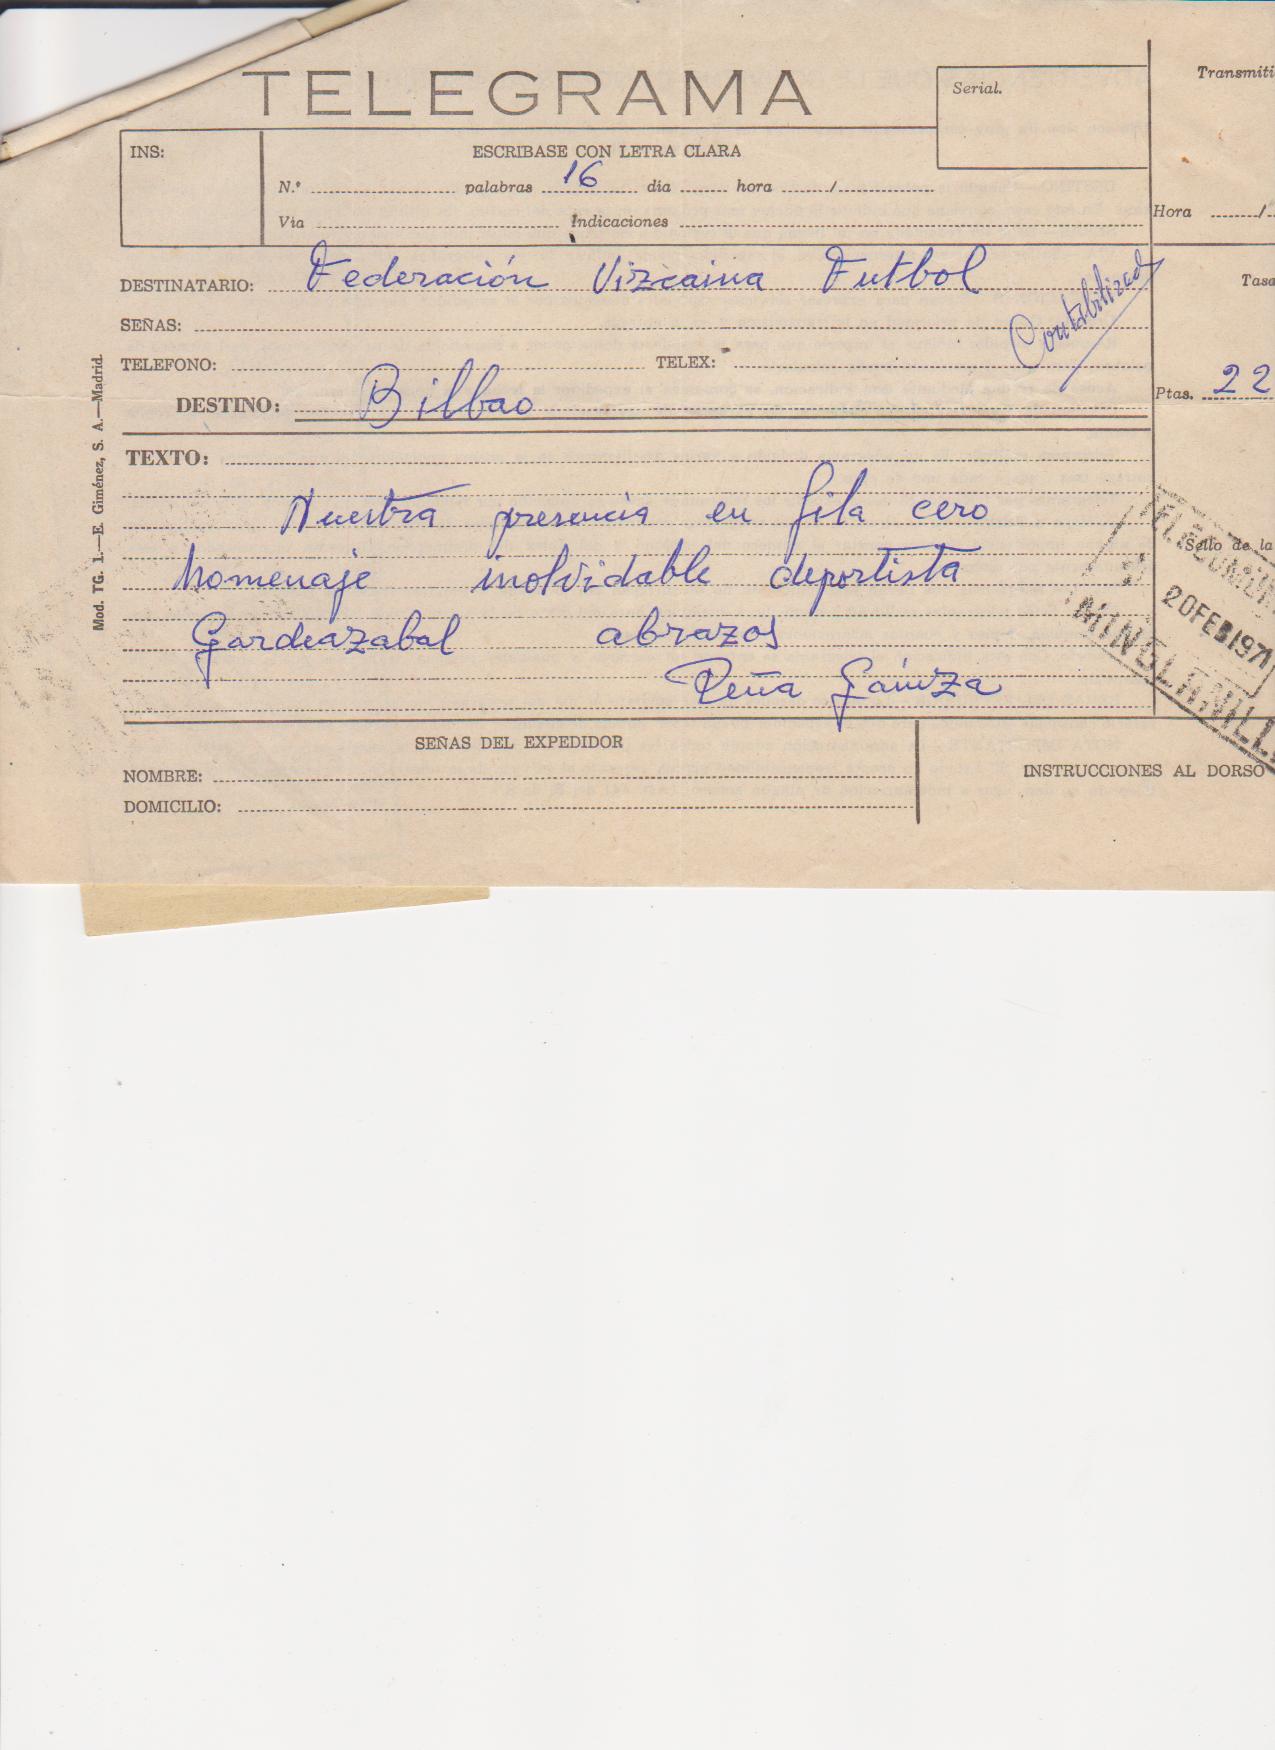 TELEGRAMA
Serial.
Transmiti
INS:
ESCRIBASE CON LETRA CLARA
N.º palabras 16 día hora /
Vía Indicaciones
Hora /
DESTINATARIO: Federación Vizcaina Futbol
Tasa
SEÑAS:
Contabilizad
TELEFONO: TELEX:
DESTINO: Bilbao
Ptas. 22
TEXTO:
Nuestra presencia en fila cero
homenaje inolvidable deportista
Gardeazabal abrazos
Peña Gáinza
Sello de la
TELECOMUN
20 FEB 1971
MINGLANILL
SEÑAS DEL EXPEDIDOR
NOMBRE:
DOMICILIO:
INSTRUCCIONES AL DORSO
Mod. TG. 1.—E. Giménez, S. A.—Madrid.